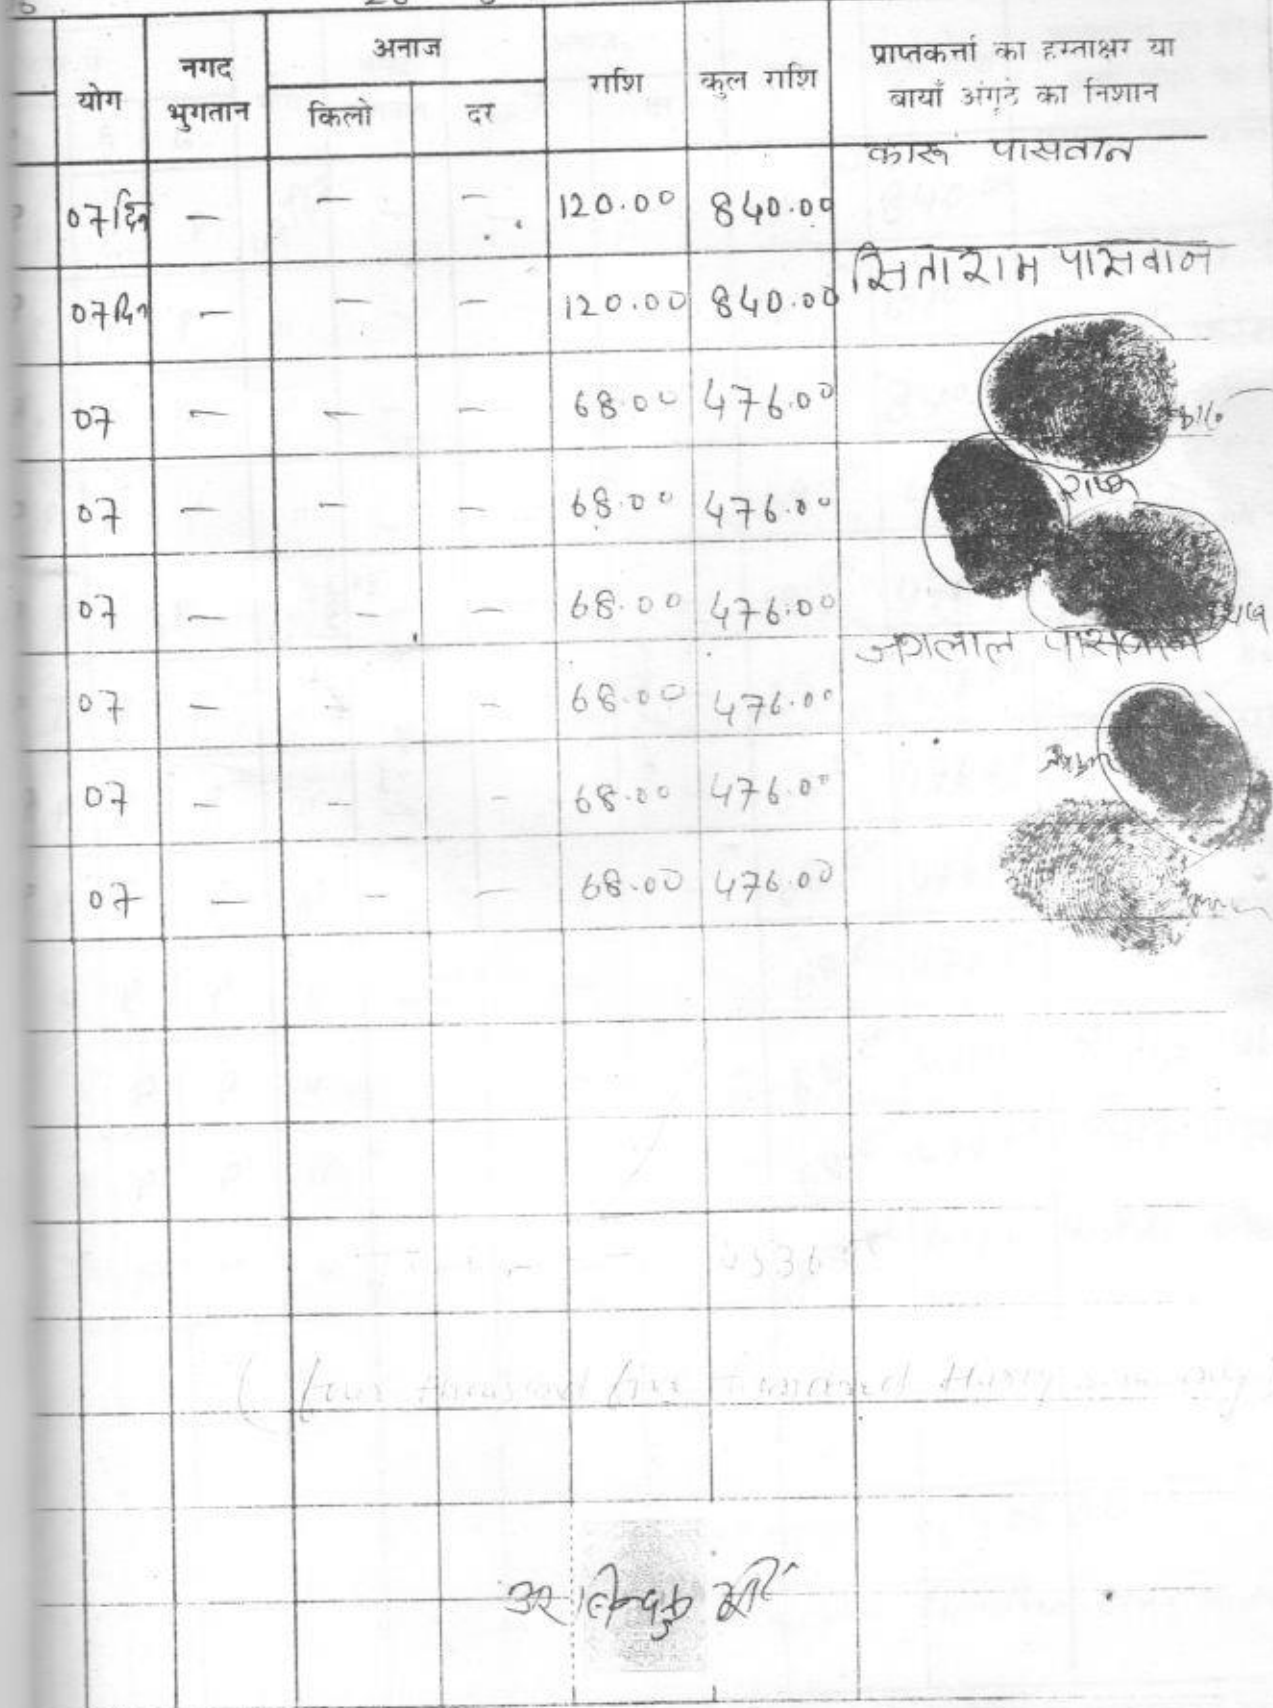 योग नगद भुगतान अनाज किलो दर राशि कुल राशि प्राप्तकर्त्ता का हस्ताक्षर या बायाँ अंगूठे का निशान
कारू पासवान
07 दिन — — — 120.00 840.00
सिताराम पासवान
07 दिन — — — 120.00 840.00
07 — — — 68.00 476.00
07 — — — 68.00 476.00
07 — — — 68.00 476.00
जगलाल पासवान
07 — — — 68.00 476.00
07 — — — 68.00 476.00
07 — — — 68.00 476.00
4536
( four thousand five hundred thirty six only )